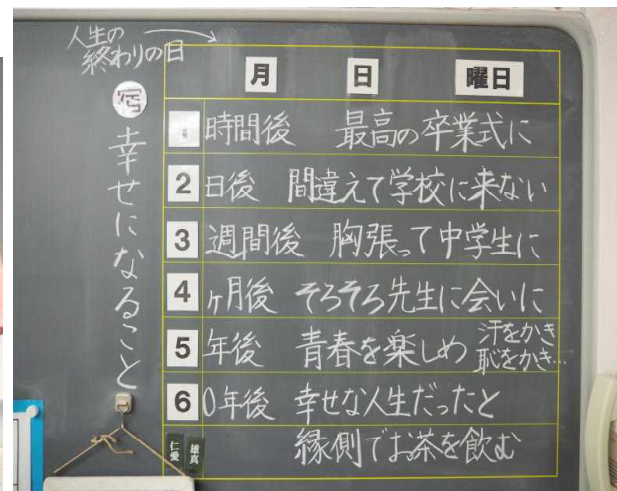 人生の
終わりの日
月 日 曜日
1 時間後 最高の卒業式に
2 日後 間違えて学校に来ない
3 週間後 胸張って中学生に
4 ヶ月後 そろそろ先生に会いに
5 年後 青春を楽しめ 汗をかき
恥をかき…
6 0年後 幸せな人生だったと
縁側でお茶を飲む
宿 幸せになること
仁愛 雄真